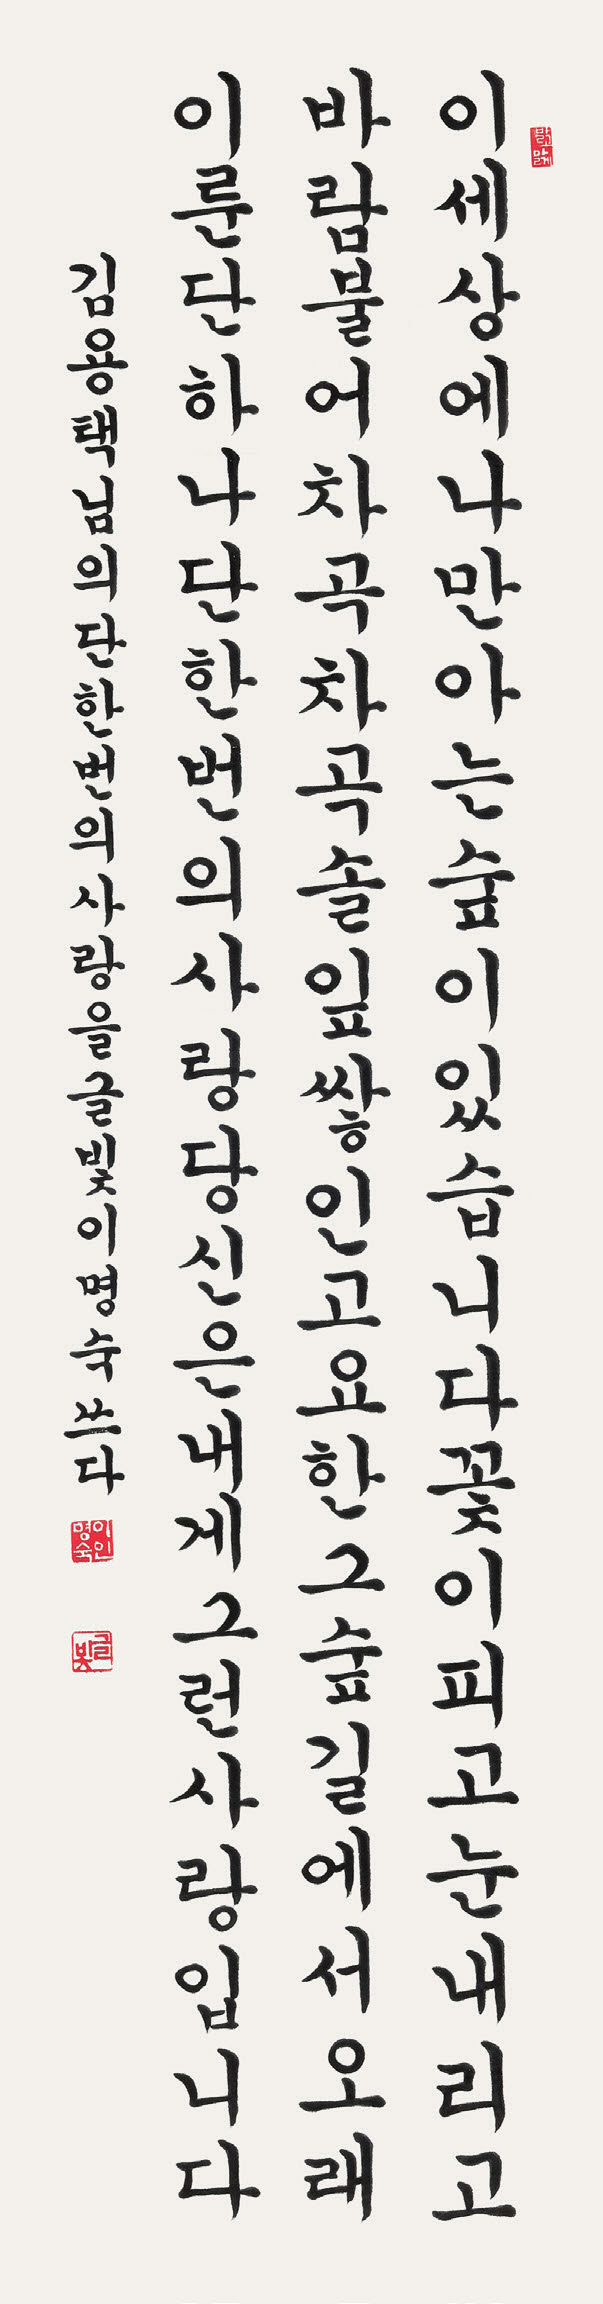 이세상에나만아는숲이있습니다꽃이피고눈내리고
바람불어차곡차곡솔잎쌓인고요한그숲길에서오래
이룬단하나단한번의사랑당신은내게그런사랑입니다
김용택님의단한번의사랑을글빛이명숙쓰다
이명숙인
글빛